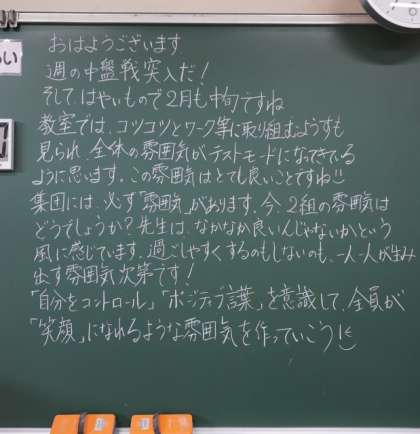 おはようございます
週の中盤戦突入だ!
そして、はやいもので2月も中旬ですね
教室では、コツコツとワーク等に取り組むようすも
見られ、全体の雰囲気がテストモードになってきてる
ように思います。この雰囲気はとても良いことですね!!
集団には、必ず「雰囲気」があります。今、2組の雰囲気は
どうでしょうか?先生は、なかなか良いんじゃないかという
風に感じています。過ごしやすくするのもしないのも、一人一人が生み
出す雰囲気次第です!
「自分をコントロール」「ポジティブ言葉」を意識して、全員が
「笑顔」になれるような雰囲気を作っていこう!